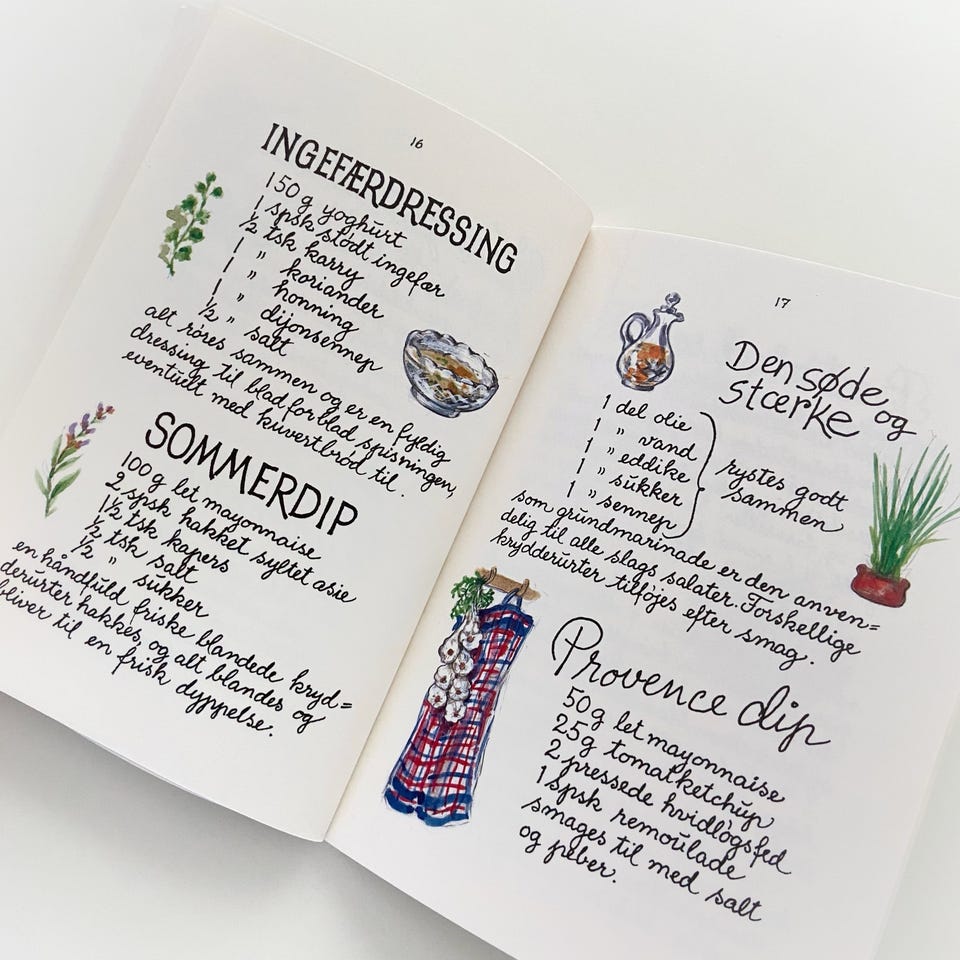 16
INGEFÆRDRESSING
150 g yoghurt
1 spsk stødt ingefær
1/2 tsk karry
1 " koriander
1 " honning
1 " dijonsennep
1/2 " salt
alt røres sammen og er en fyldig
dressing til blad for blad spisningen,
eventuelt med kuvertbrød til.
SOMMERDIP
100 g let mayonnaise
2 spsk hakket syltet asie
1 1/2 tsk kapers
1/2 tsk salt
1/2 " sukker
en håndfuld friske blandede kryd=
derurter hakkes og alt blandes og
bliver til en frisk dyppelse.
17
Den søde og
stærke
1 del olie
1 " vand
1 " eddike
1 " sukker
1 " sennep
rystes godt
sammen
som grundmarinade er den anven=
delig til alle slags salater. Forskellige
krydderurter tilføjes efter smag.
Provence dip
50g let mayonnaise
25g tomatketchup
2 pressede hvidløgsfed
1 spsk remoulade
smages til med salt
og peber.